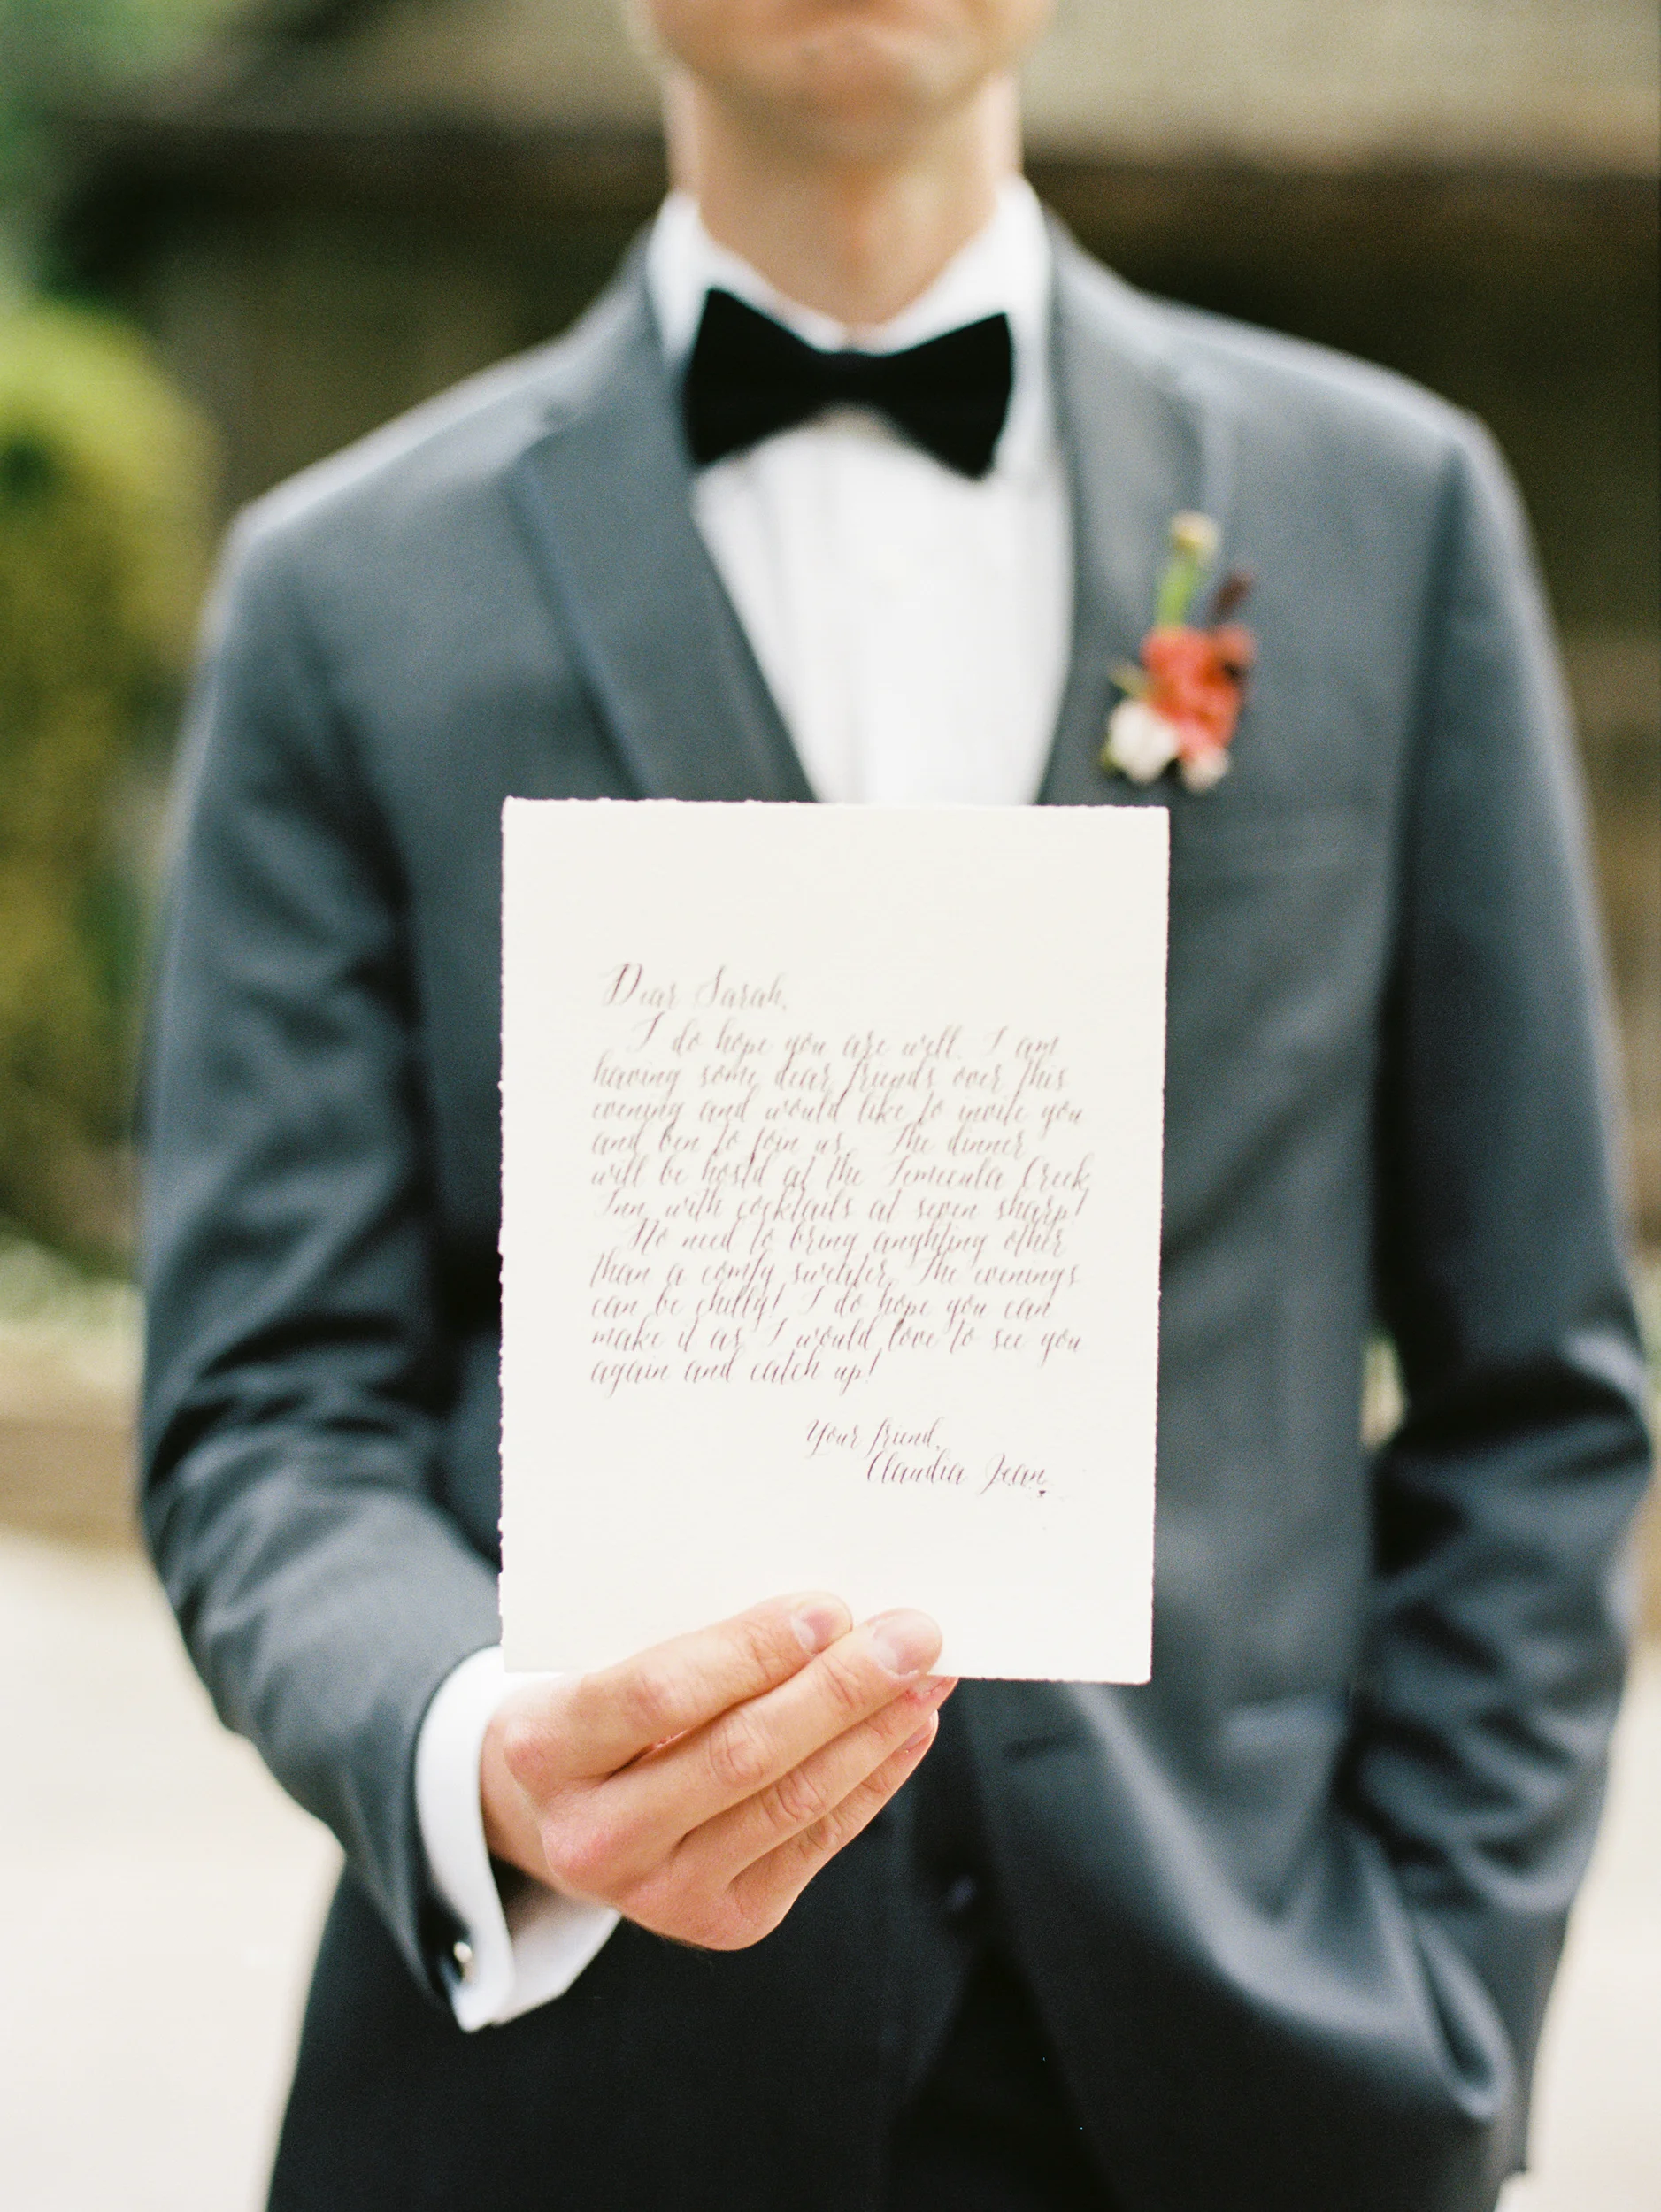 Dear Sarah,
I do hope you are well. I am
having some dear friends over this
evening and would like to invite you
and Ben to join us. The dinner
will be hostd at the Temecula Creek
Inn, with cocktails at seven sharp!
No need to bring anyhting other
than a comfy sweater. The evenings
can be chilly! I do hope you can
make it as I would love to see you
again and catch up!
Your friend,
Claudia Jean.